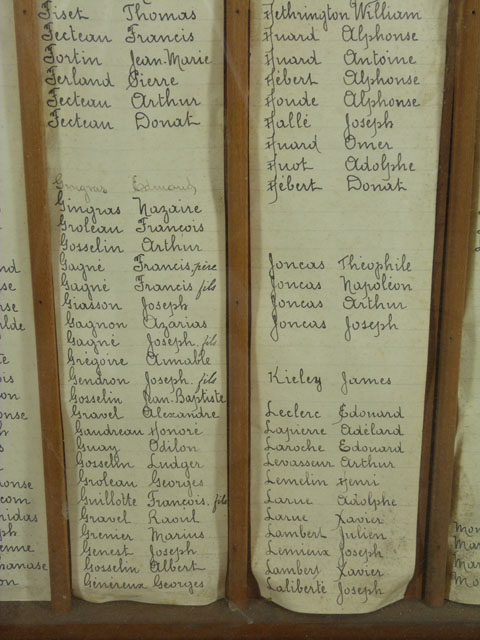 Fiset Thomas
Fecteau Francis
Fortin Jean-Marie
Ferland Pierre
Fecteau Arthur
Fecteau Donat
Gingras Edmond
Gingras Nazaire
Groleau Francois
Gosselin Arthur
Gagné Francis, père
Gagné Francis fils
Giasson Joseph
Gagnon Azarias
Gagné Joseph fils
Grégoire Aimable
Gendron Joseph fils
Gosselin Jean-Baptiste
Gravel Alexandre
Gaudreau Honoré
Guay Odilon
Gosselin Ludger
Groleau Georges
Guillotte Francois, fils
Gravel Raoul
Grenier Marius
Genest Joseph
Gosselin Albert
Généreux Georges
Hethrington William
Huard Alphonse
Huard Antoine
Hébert Alphonse
Houde Alphonse
Hallé Joseph
Huard Omer
Huot Adolphe
Hébert Donat
Joncas Théophile
Joncas Napoléon
Joncas Arthur
Joncas Joseph
Kieley James
Leclerc Edouard
Lapierre Adélard
Laroche Edouard
Levasseur Arthur
Lemelin Henri
Larue Adolphe
Larue Xavier
Lambert Julien
Lemieux Joseph
Lambert Xavier
Laliberté Joseph